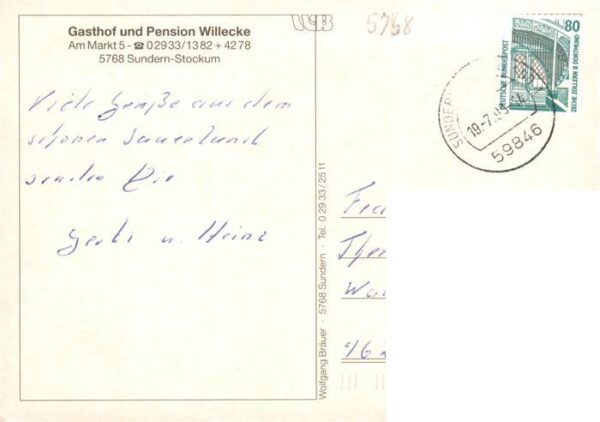 Gasthof und Pension Willecke
Am Markt 5 - ☎ 02933/1382 + 4278
5768 Sundern-Stockum
Viele Grüße aus dem
schönen Sauerland
senden Die
u. Heinz
Wolfgang Bräuer · 5768 Sundern · Tel. 02933/2511
5768
80
DEUTSCHE BUNDESPOST
ZECHE ZOLLERN II DORTMUND
SUNDERN
19.-7.
59846